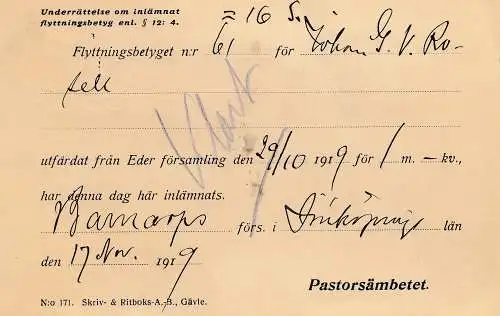 = 16 S.
Underrättelse om inlämnat
flyttningsbetyg enl. § 12: 4.
Flyttningsbetyget n:r 61 för Johan G. V. Ro-
sell
Klart
utfärdat från Eder församling den 29/10 1919 för 1 m. – kv.,
har denna dag här inlämnats.
Barnarps förs. i Jönköpings län
den 17 Nov. 1919
Pastorsämbetet.
N:o 171. Skriv- & Ritboks-A.-B., Gävle.